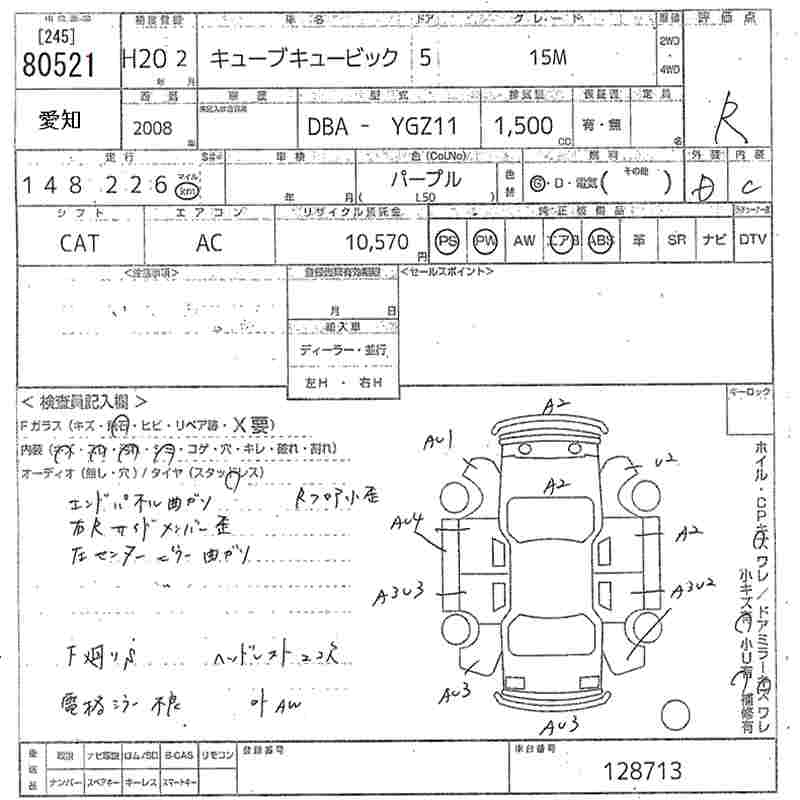 [245] 初度登録 車名 ドア グレード 評価点
80521 H20 2 キューブキュービック 5 15M 2WD・4WD
年 月
愛知 型式 排気量 保証書 定員 R
2008 DBA - YGZ11 1,500 有・無 名
年 CC
走行 車検 色(Col.No) 燃料 外装 内装
148226 マイル km 年 月 パープル 色替 G・D・電気( その他 ) D C
( L50 )
シフト エアコン リサイクル預託金 純正装備品
CAT AC 10,570円 PS PW AW エアB ABS 革 SR ナビ DTV
<注意事項> 登録書類有効期限 <セールスポイント>
月 日
輸入車
ディーラー・並行
左H ・ 右H
<検査員記入欄> キーロック
Fガラス(キズ・飛石・ヒビ・リペア跡・X要)
内装(・コゲ・穴・キレ・擦れ・割れ)
オーディオ(無し・穴)/タイヤ(スタッドレス)
エンドパネル曲がり Rフロア小歪
右Rサイドメンバー歪
左センターピラー曲がり
F廻りS ヘッドレスト2コ欠
電格ミラー不良 外AW
A2
AU1 U2
A2
AU4 A2
A3U3 A3U2
AU3
AU3
ホイル・CPキズワレ/ドアミラーキズワレ
小キズ有 小U有 補修有
後送品 取説 ナビ取説 ほム/SD B-CAS リモコン 登録番号 車台番号
ナンバー スペアキー キーレス スマートキー 128713